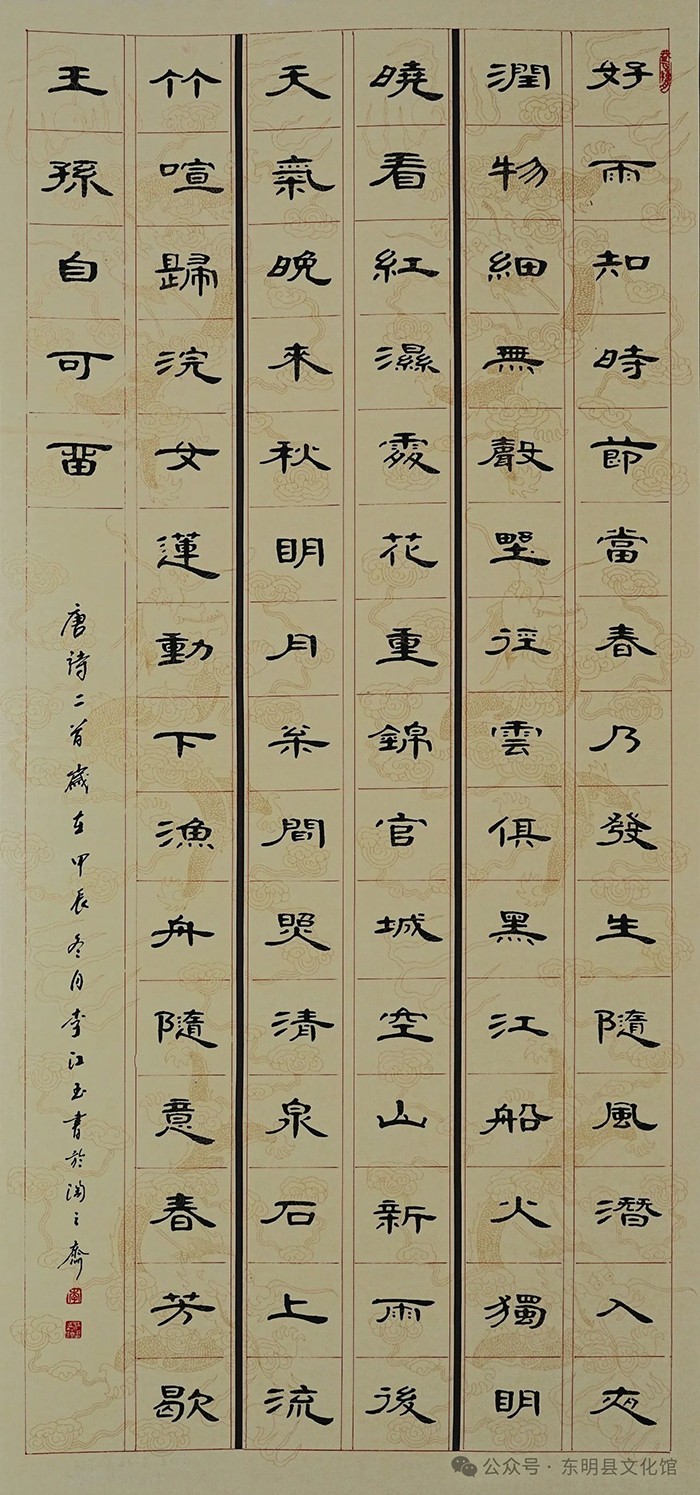 好雨知時節當春乃發生隨風潛入夜
潤物細無聲野徑雲俱黑江船火獨明
曉看紅濕處花重錦官城空山新雨後
天氣晚來秋眀月枩間照清泉石上流
竹喧歸浣女蓮動下漁舟隨意春芳歇
王孫自可留
唐詩二首歲在甲辰冬月李江玉書於齋
公众号 · 东明县文化馆